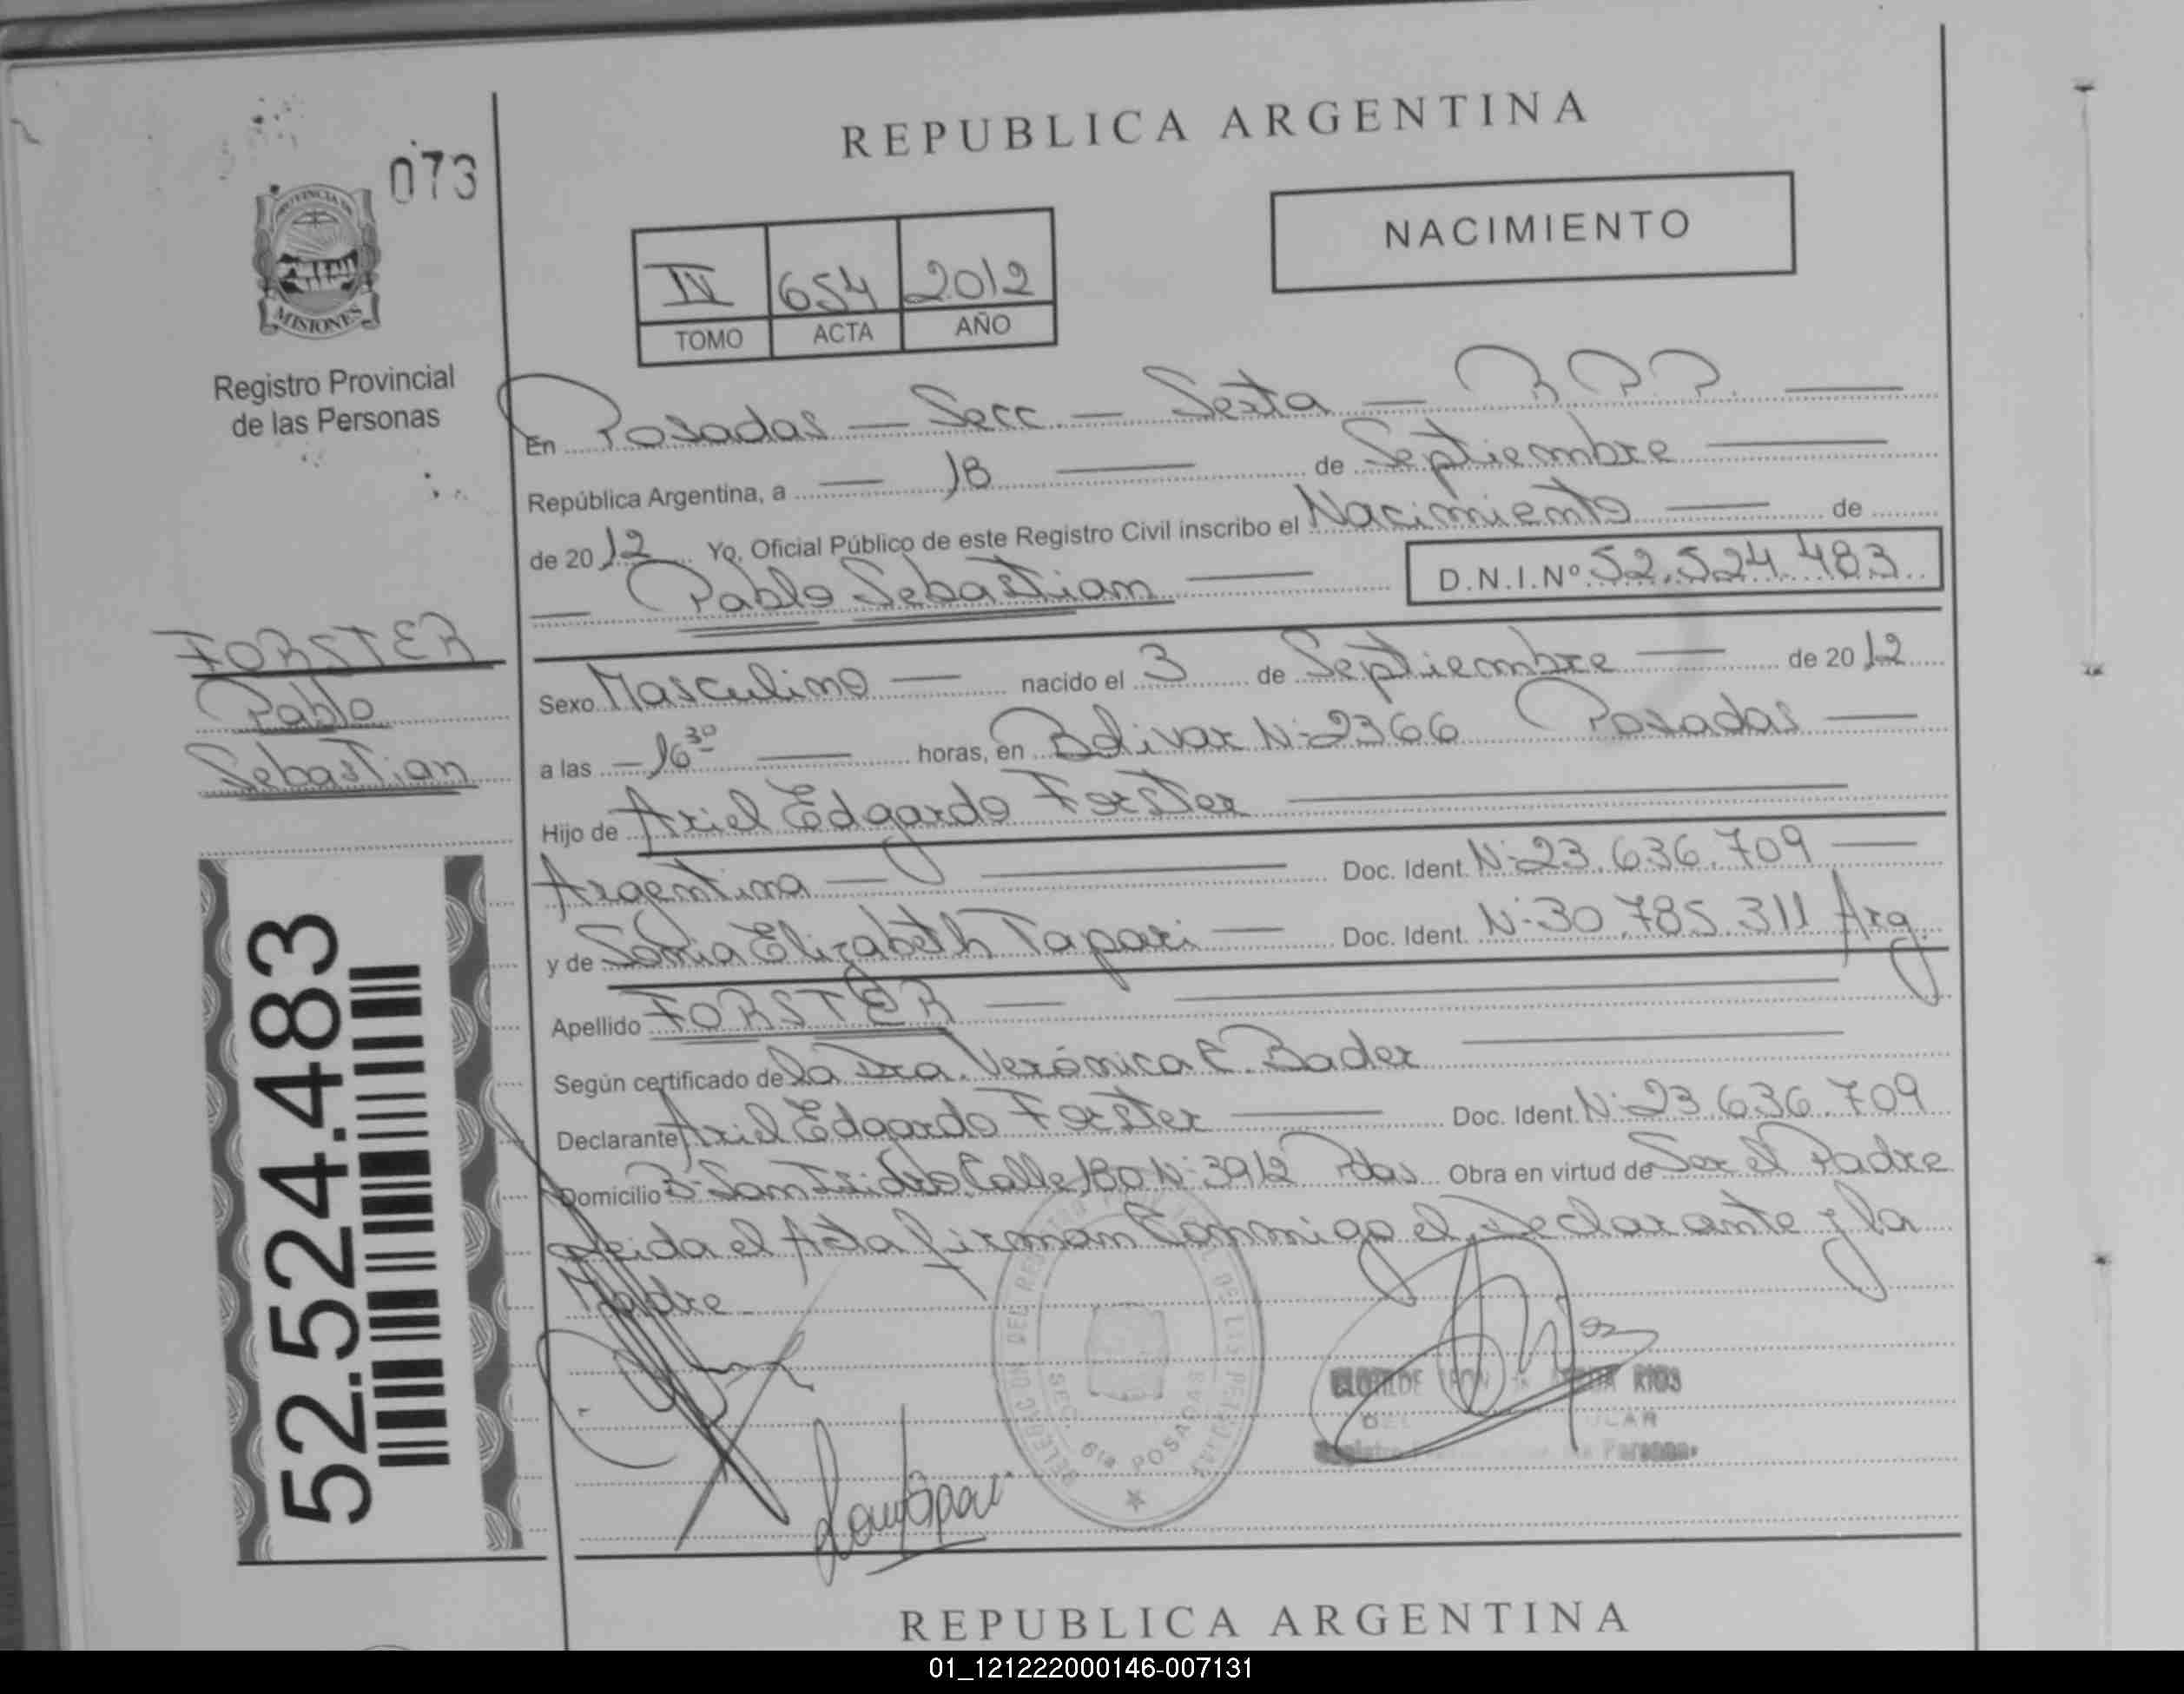 REPUBLICA ARGENTINA
073
NACIMIENTO
PROVINCIA DE
MISIONES
IV 654 2012
TOMO ACTA AÑO
Registro Provincial
de las Personas
En Posadas — Secc. — Sexta — R.P.P. —
República Argentina, a — 18 — de Septiembre —
de 2012 Yo, Oficial Público de este Registro Civil inscribo el Nacimiento — de
— Pablo Sebastian — D.N.I.Nº 52.524.483
FORSTER
Pablo
Sebastian
Sexo Masculino — nacido el 3 de Septiembre — de 2012
a las — 16 30 — horas, en Bolivar N: 2366 Posadas —
Hijo de Ariel Edgardo Forster —
Argentina — Doc. Ident. N: 23.636.709 —
y de Sonia Elizabeth Tapari — Doc. Ident. N: 30.785.311 Arg.
Apellido FORSTER —
Según certificado de la Dra. Verónica E. Bader —
Declarante Ariel Edgardo Forster — Doc. Ident. N: 23.636.709
Domicilio B: San Isidro Calle 180 N: 3912 Pdas Obra en virtud de Ser el Padre
Leida el Acta firman Conmigo el Declarante y la
Madre.
52.524.483
SECC. 6ta POSADAS
RIOS
REPUBLICA ARGENTINA
01_121222000146-007131